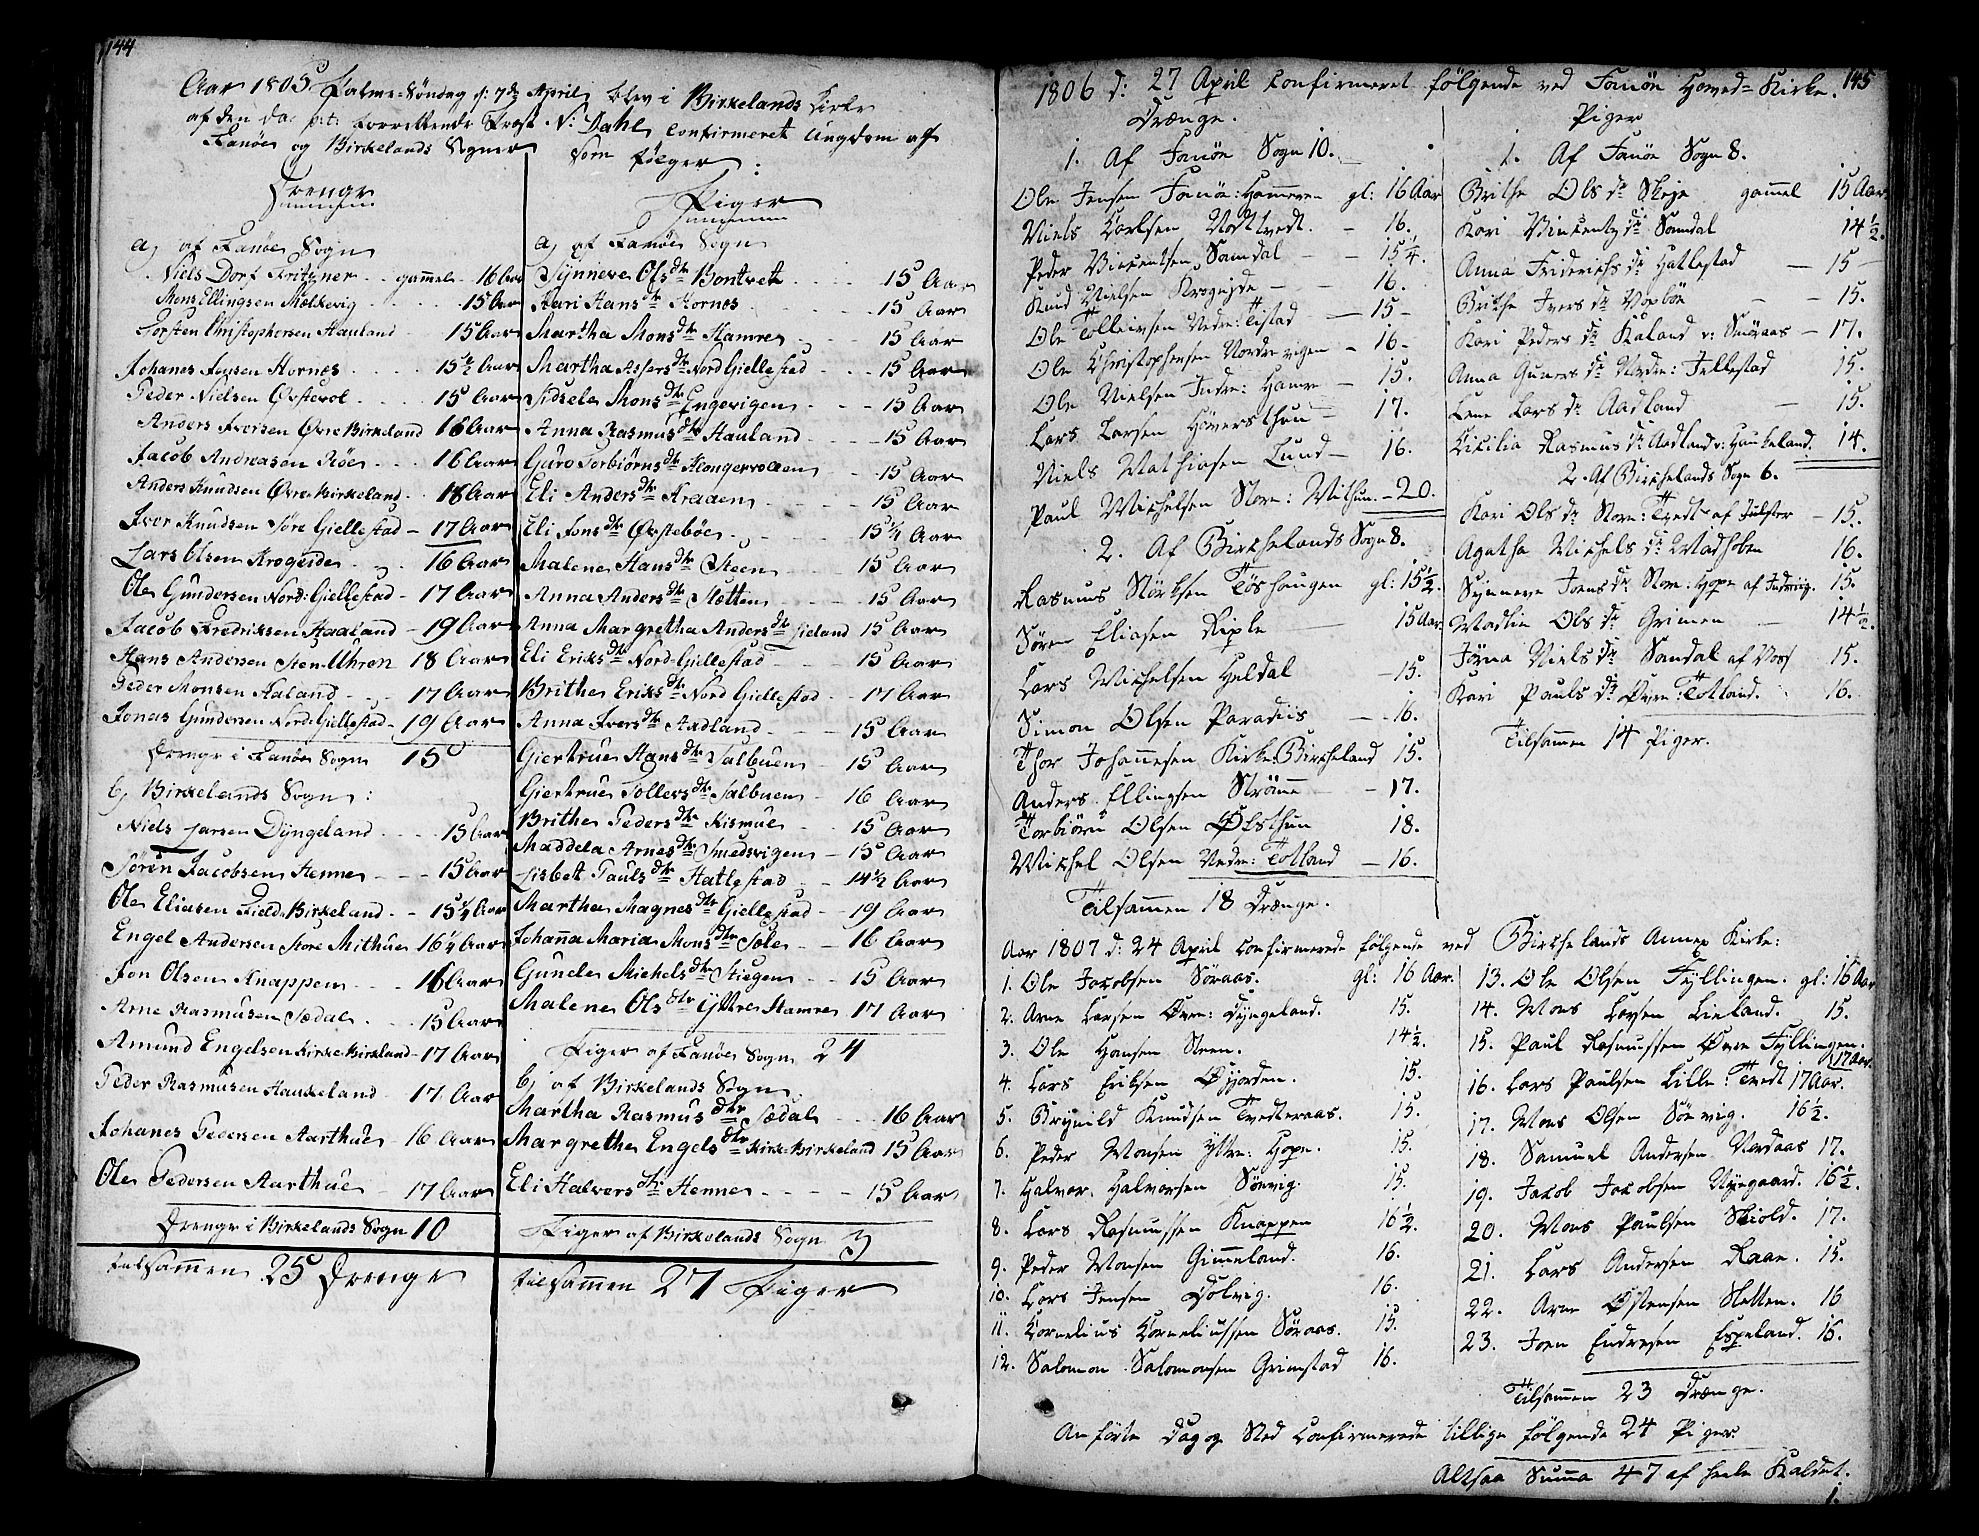 144
Aar 1805 Palme-Søndag d: 7de April blev i Birkelands Kirke
af den da p:t: forrettende Præst N: Dahl confirmeret Ungdom af
Fanøe og Birkelands Sogner som følger:
Drenge
a, af Fanøe Sogn
Niels Dorf Fritzner gammel 16 Aar
Mons Ellingsen Mælkevig 15 Aar
Torsten Christophersen Hauland 15 Aar
Johanes Hornes 15 1/2 Aar
Peder Nielsen Øvstevol 15 Aar
Anders Iversen Øvre Birkeland 16 Aar
Jacob Andreasen Røe 16 Aar
Anders Knudsen Øvre Birkeland 18 Aar
Iver Knudsen Søre Giellestad 17 Aar
Lars Olsen Krogeide 16 Aar
Ole Gundersen Nord: Giellestad 17 Aar
Jacob Fredriksen Haaland 19 Aar
Hans Andersen Sten Uhren 18 Aar
Peder Monsen Aaland 17 Aar
Jonas Gundersen Nord: Giellestad 19 Aar
Drenge i Fanøe Sogn 15
b, Birkelands Sogn:
Niels Larsen Dyngeland 15 Aar
Søren Jacobsen Henne 15 Aar
Ole Eliasen Field: Birkeland 15 1/4 Aar
Engel Andersen Store Mithue 16 1/4 Aar
Jon Olsen Knappen 16 Aar
Arne Rasmusen Sædal 15 Aar
Amund Engelsen Kirke Birkland 17 Aar
Peder Rasmusen Haukeland 17 Aar
Johanes Pedersen Aarthue 16 Aar
Ole Pedersen Aarthue 17 Aar
Drenge i Birkelands Sogn 10
tilsammen 25 Drenge
Piger
a, af Fanøe Sogn
Synneve Ols dtr Bontvet 15 Aar
Kari Hans dtr Hornes 15 Aar
Martha Mons dtr Hamre 15 Aar
Martha Assers dtr Nord Giellestad 15 Aar
Sidsele Mons dtr Engevigen 15 Aar
Anna Rasmus dtr Hauland 15 Aar
Guro Torbiørns dtr Klongervaagen 15 Aar
Eli Anders dtr Kraaen 15 Aar
Eli Jons dtr Øvstebøe 15 1/4 Aar
Malene Hans dtr Steen 15 Aar
Anna Anders dtr Sletten 15 Aar
Anna Margretha Anders dtr Lieland 15 Aar
Eli Eriks dtr Nord Giellestad 15 Aar
Brithe Eriks dtr Nord Giellestad 17 Aar
Anna Ivers dtr Aadland 15 Aar
Giertrue Hans dtr Salbuen 15 Aar
Giertrue Tollevs dtr Salbuen 16 Aar
Brithe Peders dtr Rismue 15 Aar
Maddela Arnes dtr Smedsvigen 15 Aar
Lisbett Pauls dtr Hatlestad 14 1/2 Aar
Martha Magnes dtr Giellestad 19 Aar
Johanna Maria Mons dtr Sæle 16 Aar
Gunele Michels dtr Stiegen 15 Aar
Malene Ols dtr Yttre Hamre 17 Aar
Piger af Fanøe Sogn 24
b, af Birkelands Sogn
Martha Rasmus dtr Sædal 16 Aar
Margrethe Engels dtr Kirke-Birkeland 15 Aar
Eli Halvers dtr Henne 15 Aar
Piger af Birkelands Sogn 3
tilsammen 27 Piger
145
1806 d: 27 April confirmeret følgende ved Fanöe Hoved=Kirke.
Drænge.
1. Af Fanöe Sogn 10.
Ole Jensen Fanöe: Hammeren gl: 16 Aar
Niels Carlsen Nodtvedt. 16.
Peder Vincentsen Samdal 15 1/4.
Knud Nielsen Krogeyde 16.
Ole Tolleivsen Nedre: Tistad 15
Ole Christophersen Nordrevigen 16
Ole Nielsen Indre: Hamre 15.
Lars Larsen Höversthun 17.
Niels Mathiasen Lund 16.
Paul Michelsen Store: Mithun. 20.
2. Af Birchelands Sogn 8.
Rasmus Störksen Töshougen gl: 15 1/2.
Sören Eliasen Riple 15 Aar.
Lars Michelsen Heldal 15.
Simon Olsen Paradiis 16.
Thor Johannesen Kirke: Bircheland 15.
Anders Ellingsen Strömme 17.
Torbiörn Olsen Øvsthun 18.
Michel Olsen Nedre: Totland 16.
Tilsammen 18 Drænge.
Piger
1. Af Fanöe Sogn 8.
Brithe Ols dr Skeje gammel 15 Aar
Kari Vincentz dr Samdal 14 1/2.
Anna Friderichs dr Hatlestad 15
Brithe Ivers dr Vaxböe 15.
Kari Peders dr Kaland v: Snöraas 17.
Anna Guners dr Nedre: Jellestad 15.
Lene Lars dr Aadland 15.
Cicilia Rasmus dr Aadland v: Haukeland. 14.
2. Af Birchelands Sogn 6.
Kari Ols dr Store: Tvedt af Jülster 15.
Agatha Michels dr Madhoben 16.
Synneve Joens dr Store: Hope af Indvig. 15.
Madlin Ols dr Grimen 14 1/2.
Jörna Niels dr Sandal af Voss 15.
Kari Pauls dr Øvre: Totland. 16.
Tilsammen 14 Piger.
Aar 1807 d: 24 April confirmerede følgende ved Birchelands Annex Kirke:
1. Ole Jacobsen Söraas. gl: 16 Aar.
2. Arne Larsen Øvre: Dyngeland. 15.
3. Ole Hansen Steen. 14 1/2.
4. Lars Eriksen Øyjorden. 15.
5. Brynild Knudsen Tvedteraas. 15.
6. Peder Monsen Yttre: Hope. 15.
7. Halvor Halvorsen Sörvig. 15.
8. Lars Rasmussen Knappen 16 1/2.
9. Peder Monsen Gimmeland. 16.
10. Lars Jensen Dolvig. 16.
11. Cornelius Corneliussen Söraas. 15.
12. Salomon Salomonsen Grimstad 16.
13. Ole Olsen Fyllingen. gl: 16 Aar
14. Mons Larsen Lieland. 15.
15. Paul Rasmussen Øvre Fyllingen. 17 Aar.
16. Lars Paulsen Lille: Tvedt 17 Aar.
17. Mons Olsen Sörvig. 16 1/2.
18. Samuel Andersen Nordaas 17.
19. Jacob Jacobsen Nyegaard. 16 1/2.
20. Mons Paulsen Skiold. 17.
21. Lars Andersen Raae. 15.
22. Arne Østensen Sletten. 16
23. Joen Endresen Espeland. 16.
Tilsammen 23 Drænge.
Anførte Dag og Sted Confirmerede tillige følgende 24 Piger
Altsaa Summa 47 af heele Kaldet.
1.